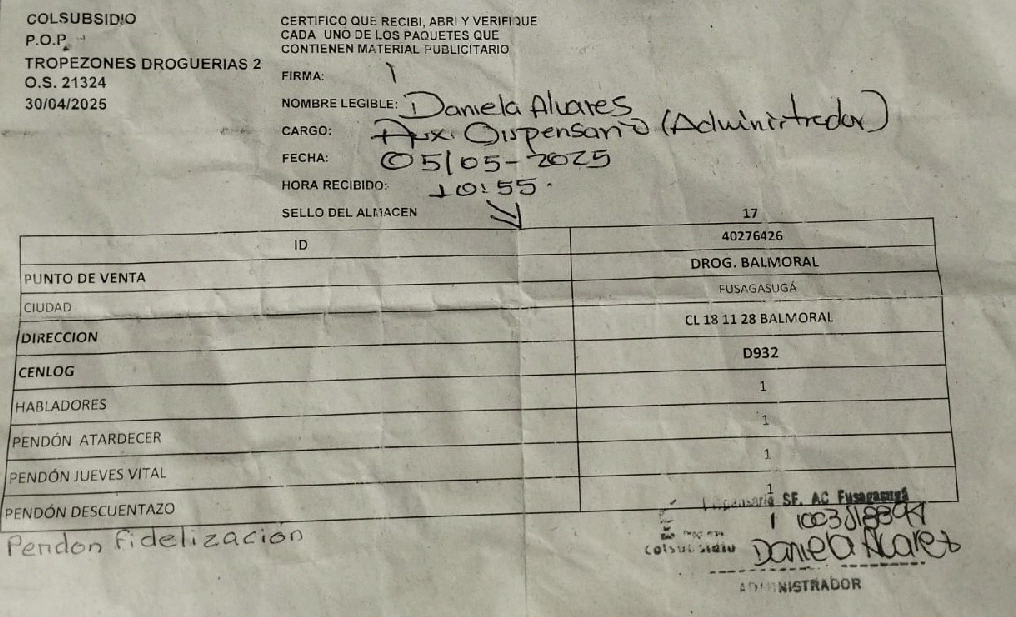 COLSUBSIDIO
P.O.P.
TROPEZONES DROGUERIAS 2
O.S. 21324
30/04/2025
CERTIFICO QUE RECIBI, ABRI Y VERIFIQUE
CADA UNO DE LOS PAQUETES QUE
CONTIENEN MATERIAL PUBLICITARIO
FIRMA:
NOMBRE LEGIBLE: Daniela Alvares
CARGO: Aux. Dispensario (Administrador)
FECHA: 05/05-2025
HORA RECIBIDO: 10:55
SELLO DEL ALMACEN
17
ID 40276426
PUNTO DE VENTA DROG. BALMORAL
CIUDAD FUSAGASUGÁ
DIRECCION CL 18 11 28 BALMORAL
CENLOG D932
HABLADORES 1
PENDÓN ATARDECER 1
PENDÓN JUEVES VITAL 1
PENDÓN DESCUENTAZO 1
Pendon fidelización
Dispensario SF. AC Fusagasugá
Colsubsidio
Daniela Alvarez
ADMINISTRADOR